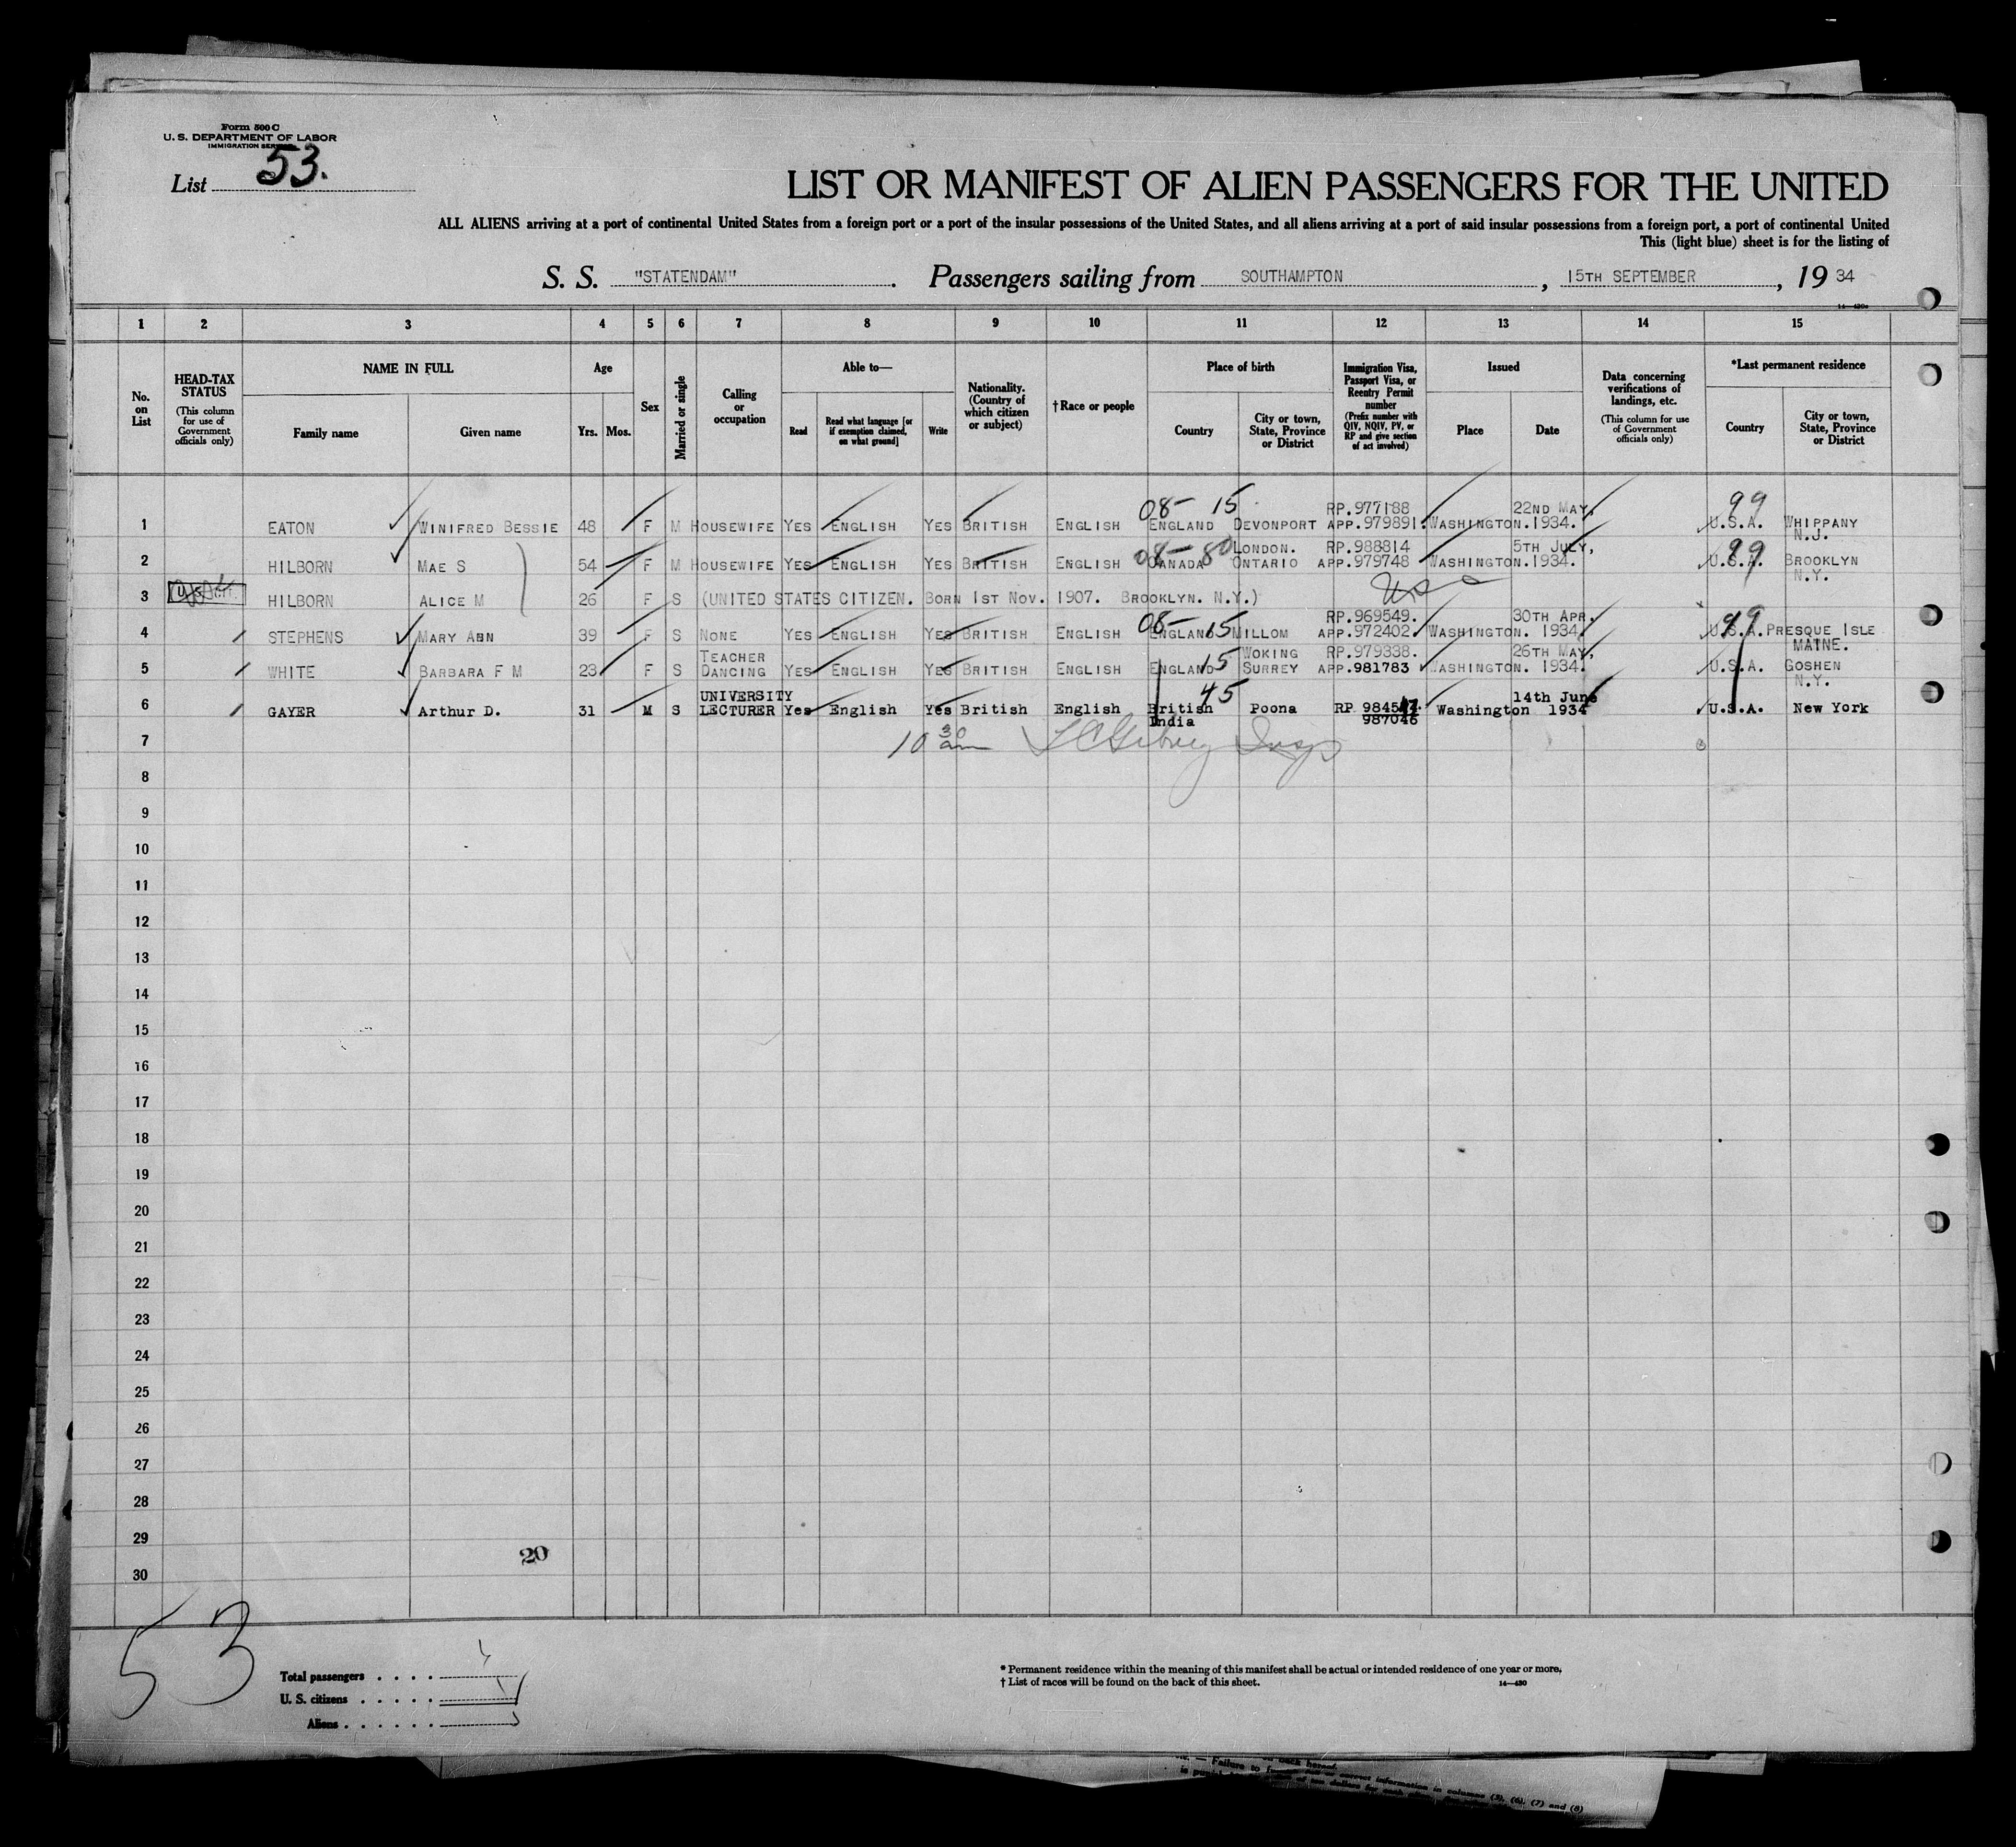 Form 500 C
U. S. DEPARTMENT OF LABOR
IMMIGRATION SERVICE
List 53.
LIST OR MANIFEST OF ALIEN PASSENGERS FOR THE UNITED
ALL ALIENS arriving at a port of continental United States from a foreign port or a port of the insular possessions of the United States, and all aliens arriving at a port of said insular possessions from a foreign port, a port of continental United
This (light blue) sheet is for the listing of
S. S. "STATENDAM". Passengers sailing from SOUTHAMPTON, 15TH SEPTEMBER, 1934
1 2 3 4 5 6 7 8 9 10 11 12 13 14 15
No. on List
HEAD-TAX STATUS (This column for use of Government officials only)
NAME IN FULL Family name Given name
Age Yrs. Mos.
Sex
Married or single
Calling or occupation
Able to— Read Read what language [or if exemption claimed, on what ground] Write
Nationality. (Country of which citizen or subject)
† Race or people
Place of birth Country City or town, State, Province or District
Immigration Visa, Passport Visa, or Reentry Permit number (Prefix number with QIV, NQIV, PV, or RP and give section of act involved)
Issued Place Date
Data concerning verifications of landings, etc. (This column for use of Government officials only)
*Last permanent residence Country City or town, State, Province or District
08- 15 RP.977188 22ND MAY, 99
1 EATON WINIFRED BESSIE 48 F M HOUSEWIFE YES ENGLISH YES BRITISH ENGLISH ENGLAND DEVONPORT APP.979891. WASHINGTON. 1934. U.S.A. WHIPPANY N.J.
08- 80 LONDON. RP.988814 5TH JULY, 99
2 HILBORN MAE S 54 F M HOUSEWIFE YES ENGLISH YES BRITISH ENGLISH CANADA ONTARIO APP.979748 WASHINGTON. 1934. U.S.A. BROOKLYN N.Y.
3 HILBORN ALICE M 26 F S (UNITED STATES CITIZEN. BORN 1ST NOV. 1907. BROOKLYN. N.Y.) USA
08- 15 RP.969549. 30TH APR. 99
4 STEPHENS MARY ANN 39 F S NONE YES ENGLISH YES BRITISH ENGLISH ENGLAND MILLOM APP.972402. WASHINGTON. 1934. U.S.A. PRESQUE ISLE MAINE.
TEACHER 15 WOKING RP.979338. 26TH MAY,
5 WHITE BARBARA F M 23 F S DANCING YES ENGLISH YES BRITISH ENGLISH ENGLAND SURREY APP.981783 WASHINGTON. 1934. U.S.A. GOSHEN N.Y.
UNIVERSITY 45 14th June
6 GAYER Arthur D. 31 M S LECTURER Yes English Yes British English British India Poona RP 987046 Washington 1934 U.S.A. New York
7 10 30 am Insp
8
9
10
11
12
13
14
15
16
17
18
19
20
21
22
23
24
25
26
27
28
29
20
30
53
Total passengers
U. S. citizens
Aliens
* Permanent residence within the meaning of this manifest shall be actual or intended residence of one year or more.
† List of races will be found on the back of this sheet.
14—430